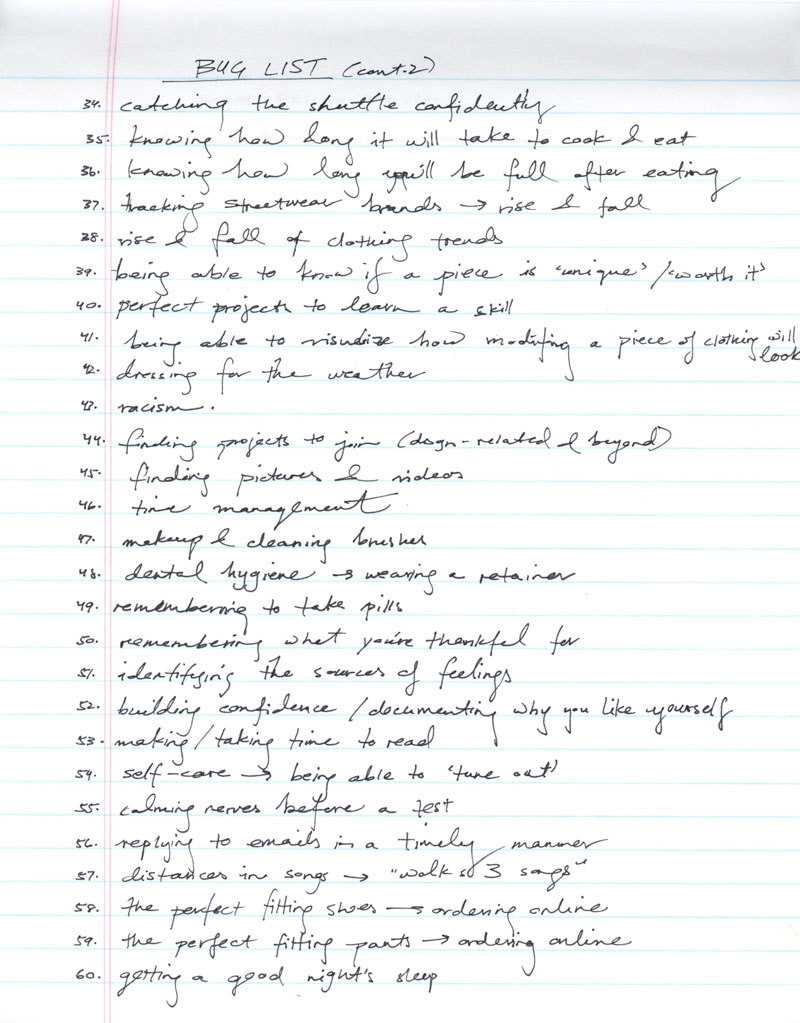 BUG LIST (cont. 2)
34. catching the shuttle confidently
35. knowing how long it will take to cook & eat
36. knowing how long you'll be full after eating
37. tracking streetwear brands → rise & fall
38. rise & fall of clothing trends
39. being able to know if a piece is 'unique'/'worth it'
40. perfect projects to learn a skill
41. being able to visualize how modifying a piece of clothing will look
42. dressing for the weather
43. racism.
44. finding projects to join (dsgn-related & beyond)
45. finding pictures & videos
46. time management
47. makeup & cleaning brushes
48. dental hygiene → wearing a retainer
49. remembering to take pills
50. remembering what you're thankful for
51. identifying the sources of feelings
52. building confidence / documenting why you like yourself
53. making/taking time to read
54. self-care → being able to 'tune out'
55. calming nerves before a test
56. replying to emails in a timely manner
57. distances in songs → "walk 3 songs"
58. the perfect fitting shoes → ordering online
59. the perfect fitting pants → ordering online
60. getting a good night's sleep